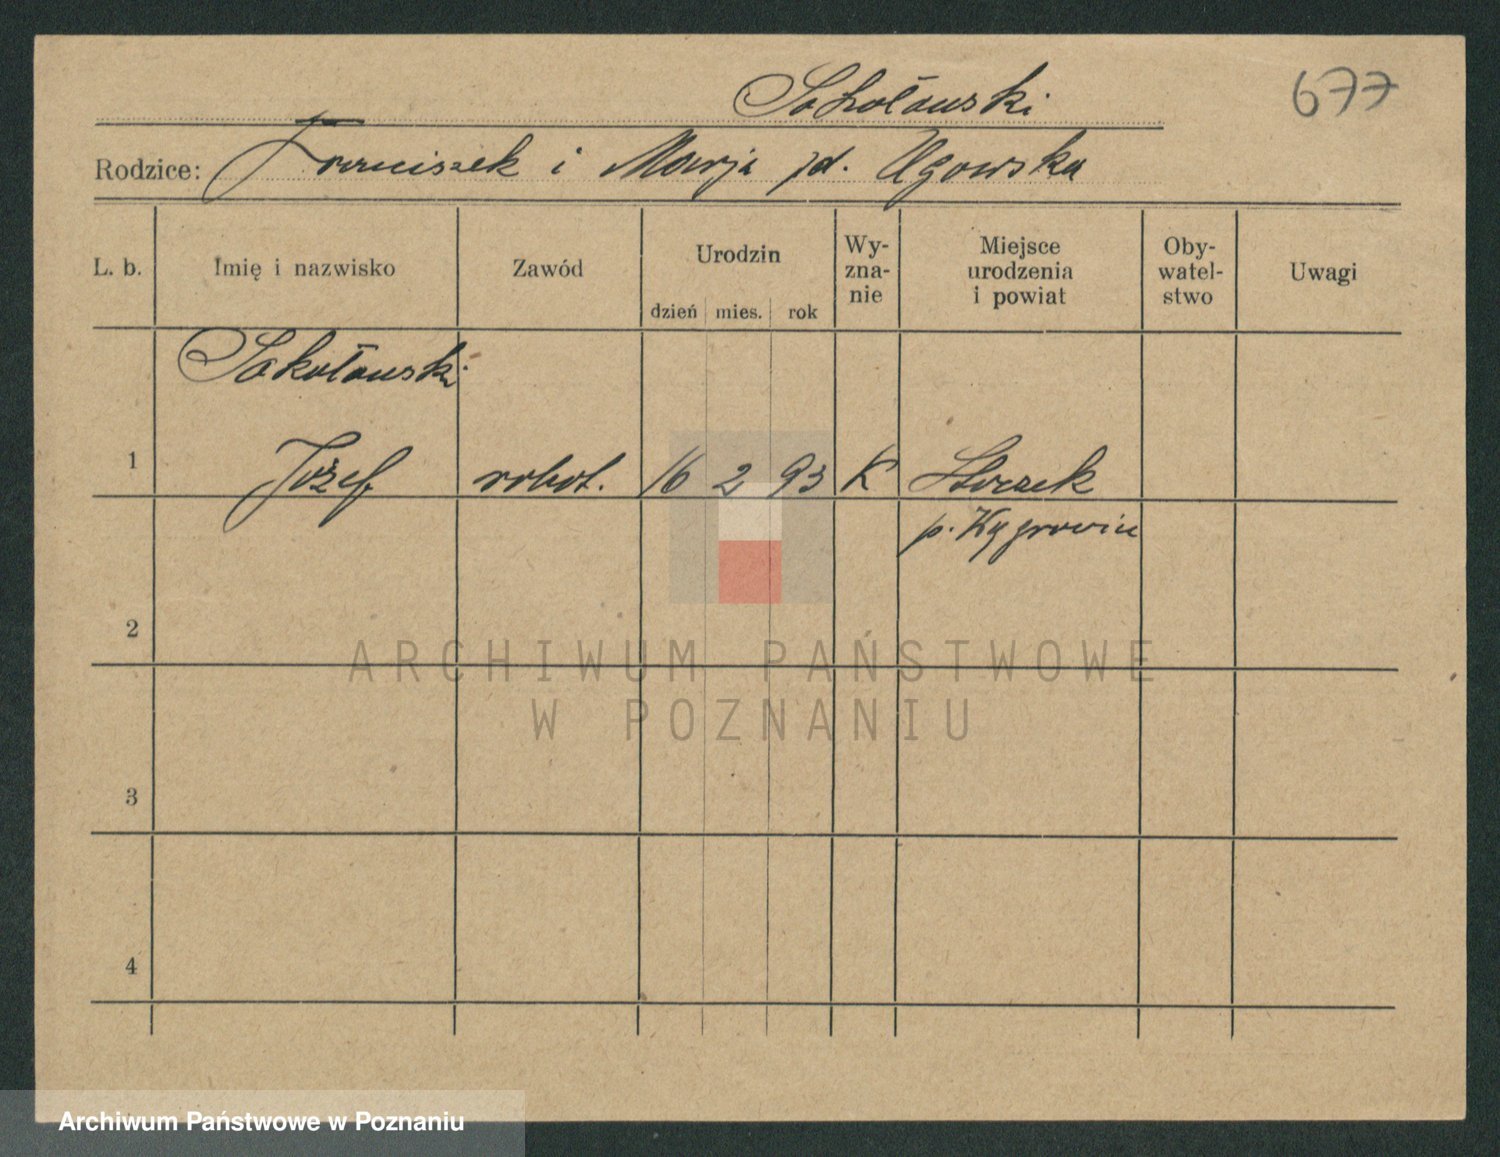 Sokołowski
677
Rodzice: Franciszek i Marja zd. Ugowska
L. b.
Imię i nazwisko
Zawód
Urodzin
dzień mies. rok
Wy-
zna-
nie
Miejsce
urodzenia
i powiat
Oby-
watel-
stwo
Uwagi
Sokołowski
1 Józef robot. 16 2 93 K
p.
2
3
4
ARCHIWUM PAŃSTWOWE
W POZNANIU
Archiwum Państwowe w Poznaniu